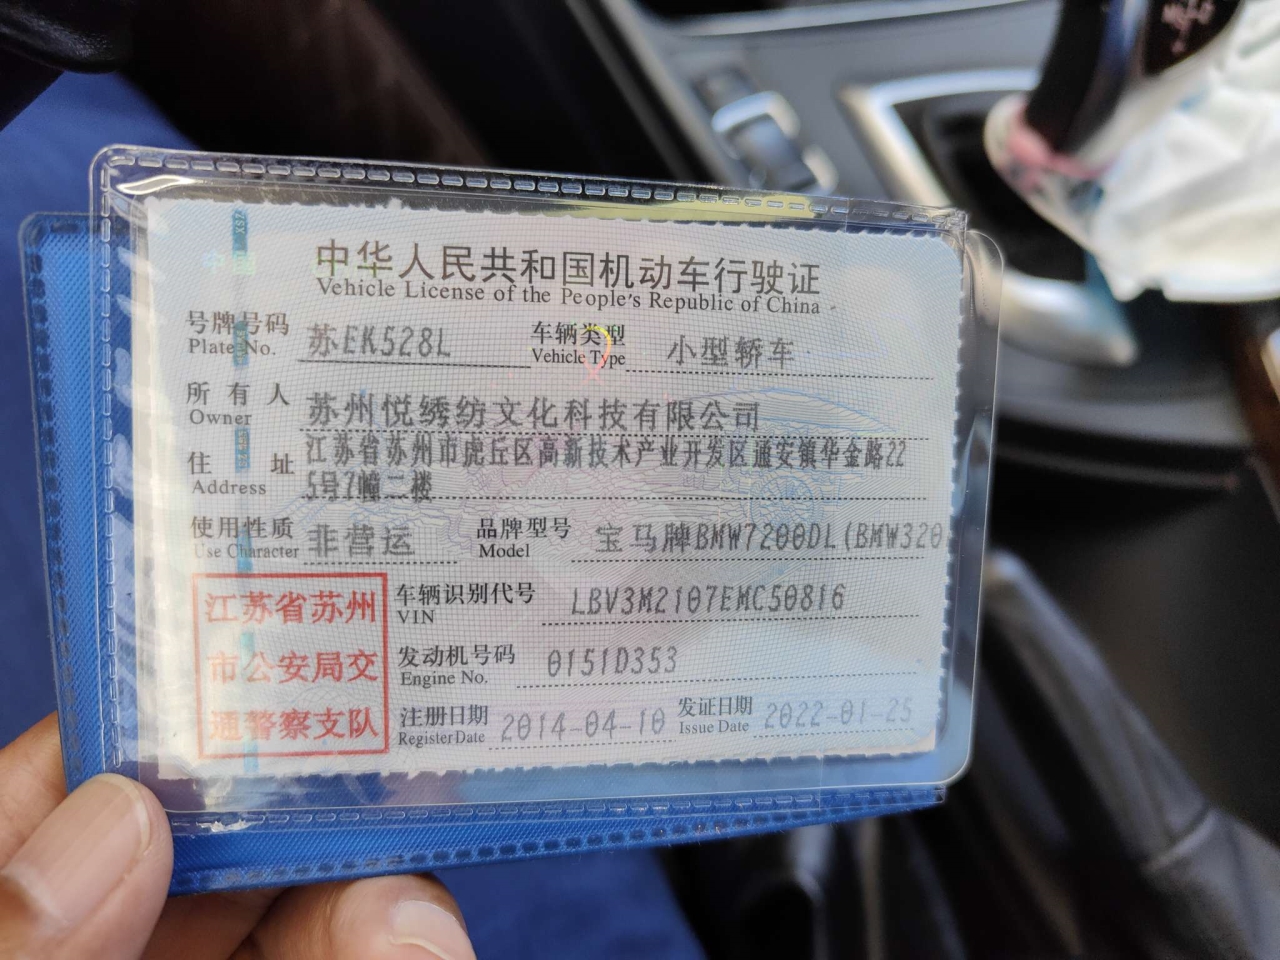 中华人民共和国机动车行驶证
Vehicle License of the People's Republic of China
号牌号码 苏EK528L 车辆类型 小型轿车
Plate No. Vehicle Type
所有人 苏州悦绣纺文化科技有限公司
Owner
住址 江苏省苏州市虎丘区高新技术产业开发区通安镇华金路22
Address 5号7幢二楼
使用性质 非营运 品牌型号 宝马牌BMW7200DL(BMW320
Use Character Model
江苏省苏州
市公安局交
通警察支队
车辆识别代号 LBV3M2107EMC50816
VIN
发动机号码 0151D353
Engine No.
注册日期 2014-04-10 发证日期 2022-01-25
Register Date Issue Date